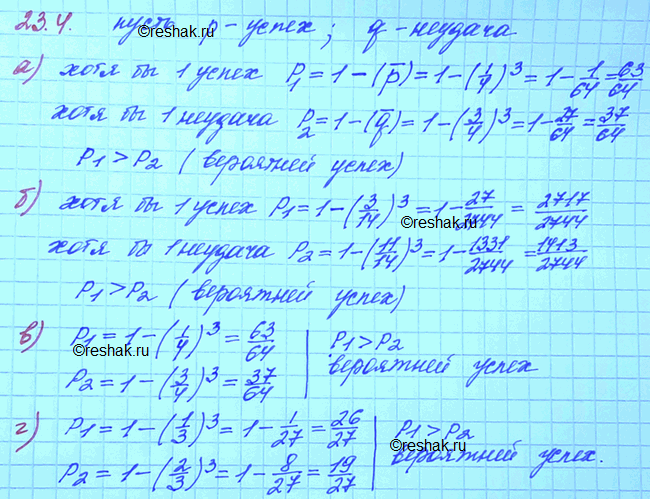 23.4. пусть p - успех; q - неудача
©reshak.ru
а) хотя бы 1 успех P₁ = 1 - (p̅) = 1 - (1/4)³ = 1 - 1/64 = 63/64
хотя бы 1 неудача P₂ = 1 - (q̅) = 1 - (3/4)³ = 1 - 27/64 = 37/64
©reshak.ru
P₁ > P₂ (вероятней успех)
б) хотя бы 1 успех P₁ = 1 - (3/14)³ = 1 - 27/2744 = 2717/2744
©reshak.ru
хотя бы 1 неудача P₂ = 1 - (11/14)³ = 1 - 1331/2744 = 1413/2744
P₁ > P₂ (вероятней успех)
в) P₁ = 1 - (1/4)³ = 63/64 | P₁ > P₂
©reshak.ru
P₂ = 1 - (3/4)³ = 37/64 | вероятней успех
г) P₁ = 1 - (1/3)³ = 1 - 1/27 = 26/27 | P₁ > P₂
©reshak.ru
P₂ = 1 - (2/3)³ = 1 - 8/27 = 19/27 | вероятней успех.